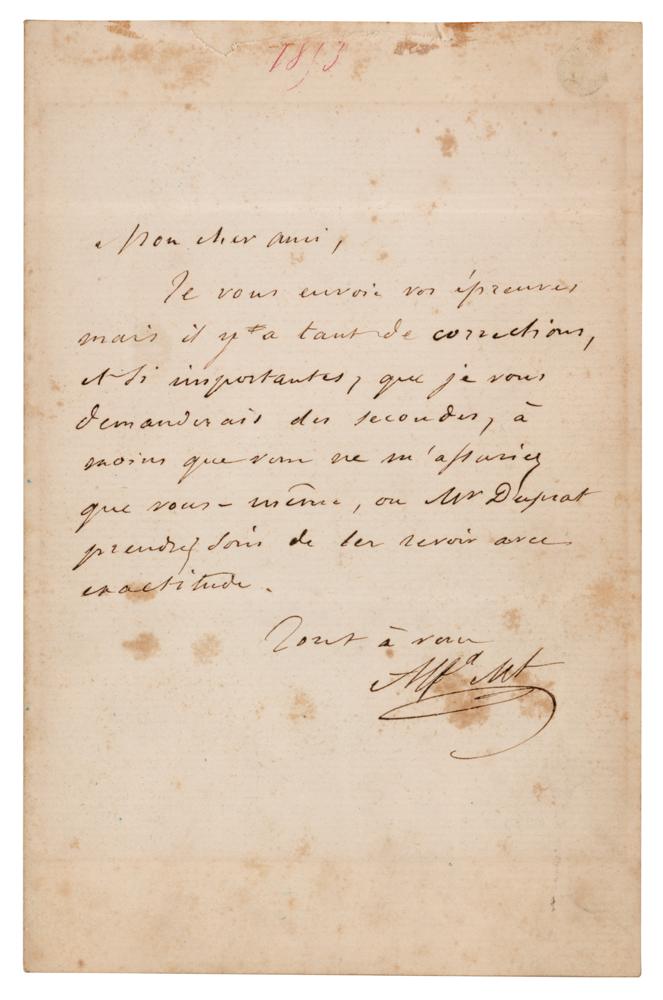 Mon cher ami,
Je vous envoie vos épreuves
mais il y a tant de corrections,
et si importantes, que je vous
demanderais des secondes, à
moins que vous ne m'assuriez
que vous-même, ou Mr Duprat
prendrez soin de les revoir avec
exactitude.
Tout à vous
Alfd Mt